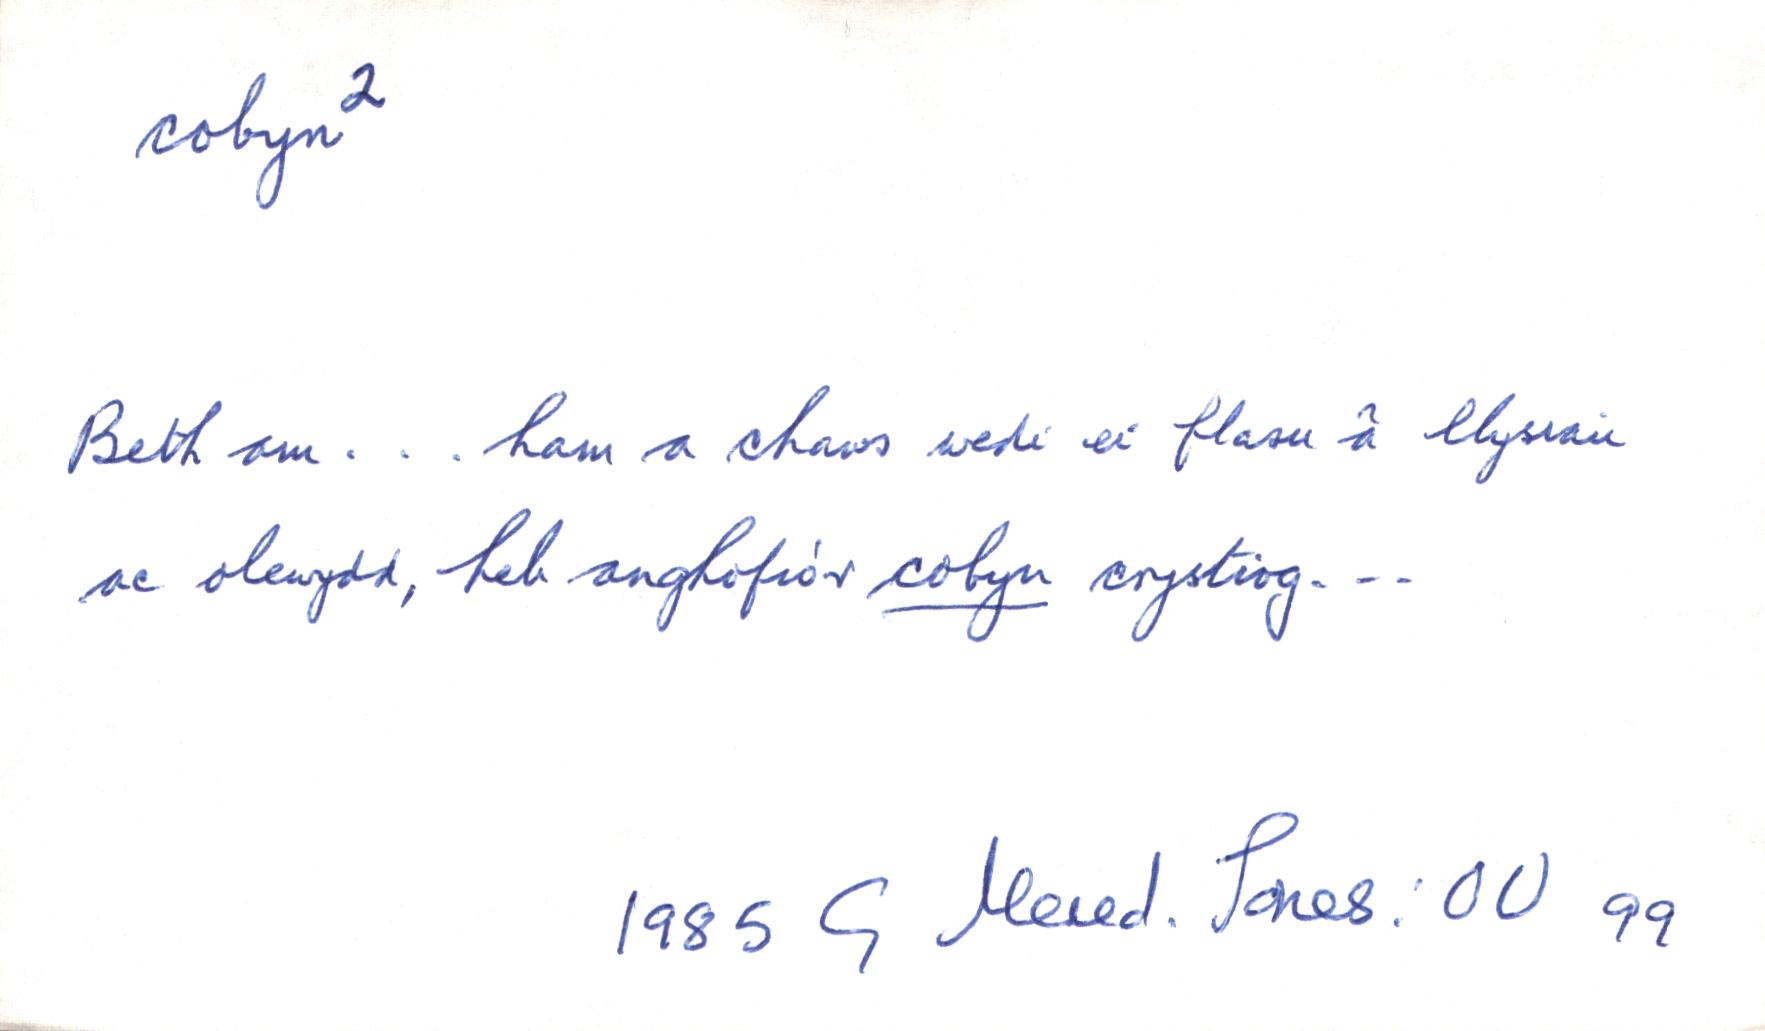 cobyn²
Beth am . . . ham a chaws wedi ei flasu â llysiau
ac olewydd, heb anghofio'r cobyn crystiog. - -
1985 G Mered. Jones: OU 99